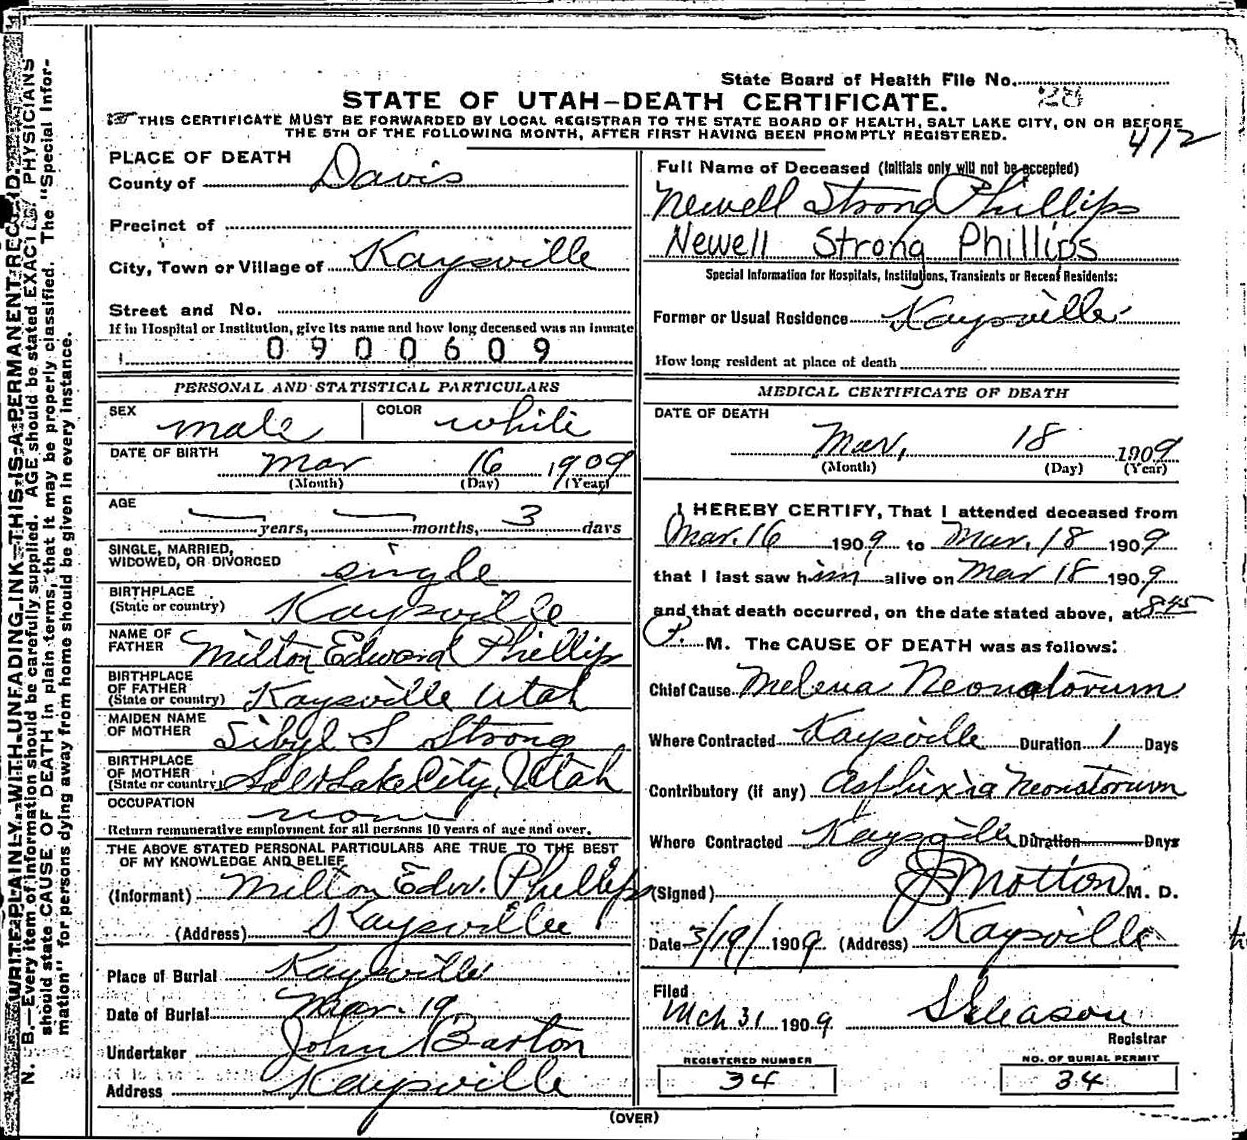 N. B.—WRITE PLAINLY WITH UNFADING INK—THIS IS A PERMANENT RECORD.
Every item of information should be carefully supplied. AGE should be stated EXACTLY. PHYSICIANS
should state CAUSE OF DEATH in plain terms, that it may be properly classified. The "Special Infor-
mation" for persons dying away from home should be given in every instance.
State Board of Health File No. 28
STATE OF UTAH—DEATH CERTIFICATE.
THIS CERTIFICATE MUST BE FORWARDED BY LOCAL REGISTRAR TO THE STATE BOARD OF HEALTH, SALT LAKE CITY, ON OR BEFORE
THE 5TH OF THE FOLLOWING MONTH, AFTER FIRST HAVING BEEN PROMPTLY REGISTERED.
412
PLACE OF DEATH
County of Davis
Precinct of
City, Town or Village of Kaysville
Street and No.
If in Hospital or Institution, give its name and how long deceased was an inmate
0900609
PERSONAL AND STATISTICAL PARTICULARS
SEX male COLOR white
DATE OF BIRTH Mar 16 1909
(Month) (Day) (Year)
AGE
— years, — months, 3 days
SINGLE, MARRIED,
WIDOWED, OR DIVORCED single
BIRTHPLACE
(State or country) Kaysville
NAME OF
FATHER Milton Edward Phillips
BIRTHPLACE
OF FATHER
(State or country) Kaysville Utah
MAIDEN NAME
OF MOTHER Sibyl S Strong
BIRTHPLACE
OF MOTHER
(State or country) Salt Lake City, Utah
OCCUPATION
Return remunerative employment for all persons 10 years of age and over.
THE ABOVE STATED PERSONAL PARTICULARS ARE TRUE TO THE BEST
OF MY KNOWLEDGE AND BELIEF
(Informant) Milton Edw. Phillips
(Address) Kaysville
Place of Burial Kaysville
Date of Burial Mar. 19
Undertaker John Barton
Address Kaysville
Full Name of Deceased (Initials only will not be accepted)
Newell Strong Phillips
Newell Strong Phillips
Special Information for Hospitals, Institutions, Transients or Recent Residents:
Former or Usual Residence Kaysville
How long resident at place of death
MEDICAL CERTIFICATE OF DEATH
DATE OF DEATH
Mar, 18 1909
(Month) (Day) (Year)
I HEREBY CERTIFY, That I attended deceased from
Mar. 16 1909 to Mar. 18 1909
that I last saw him alive on Mar 18 1909
and that death occurred, on the date stated above, at 8:45
P. M. The CAUSE OF DEATH was as follows:
Chief Cause Melena Neonatorum
Where Contracted Kaysville Duration 1 Days
Contributory (if any) Asfhixia Neonatorum
Where Contracted Kaysville Duration Days
(Signed) M. D.
Date 3/19/ 1909 (Address) Kaysville
Filed
Mch 31 1909 Gleason
Registrar
REGISTERED NUMBER
34
NO. OF BURIAL PERMIT
34
(OVER)